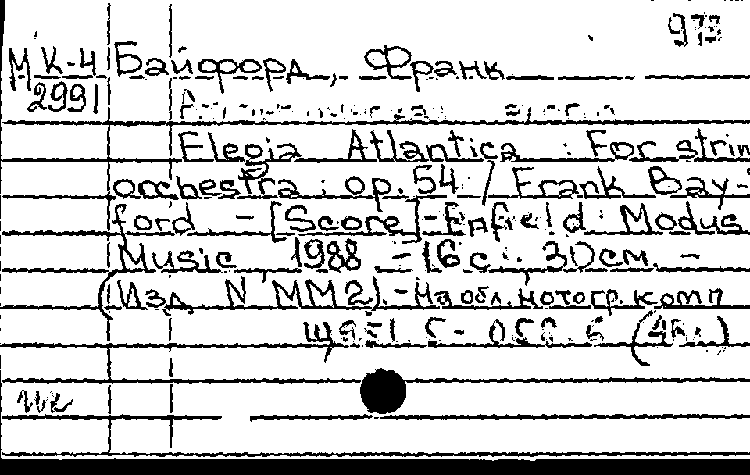 973
МК-4 Байфорд, Франк
2991
Elegia Atlantica : For strin
orchestra : op. 54 / Frank Bay-
ford. - [Score] - Enfield : Modus
Music, 1988. - 16 с. ; 30 см. -
(Изд. N MM2). - На обл. нотогр. комп